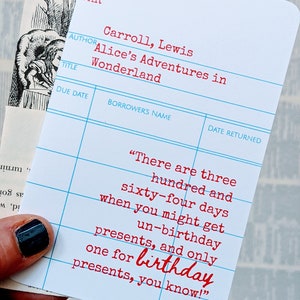 AUTHOR
Carroll, Lewis
Alice's Adventures in
TITLE
Wonderland
DUE DATE
BORROWER'S NAME
DATE RETURNED
“There are three
hundred and
sixty-four days
when you might get
un-birthday
presents, and only
one for birthday
presents, you know!”